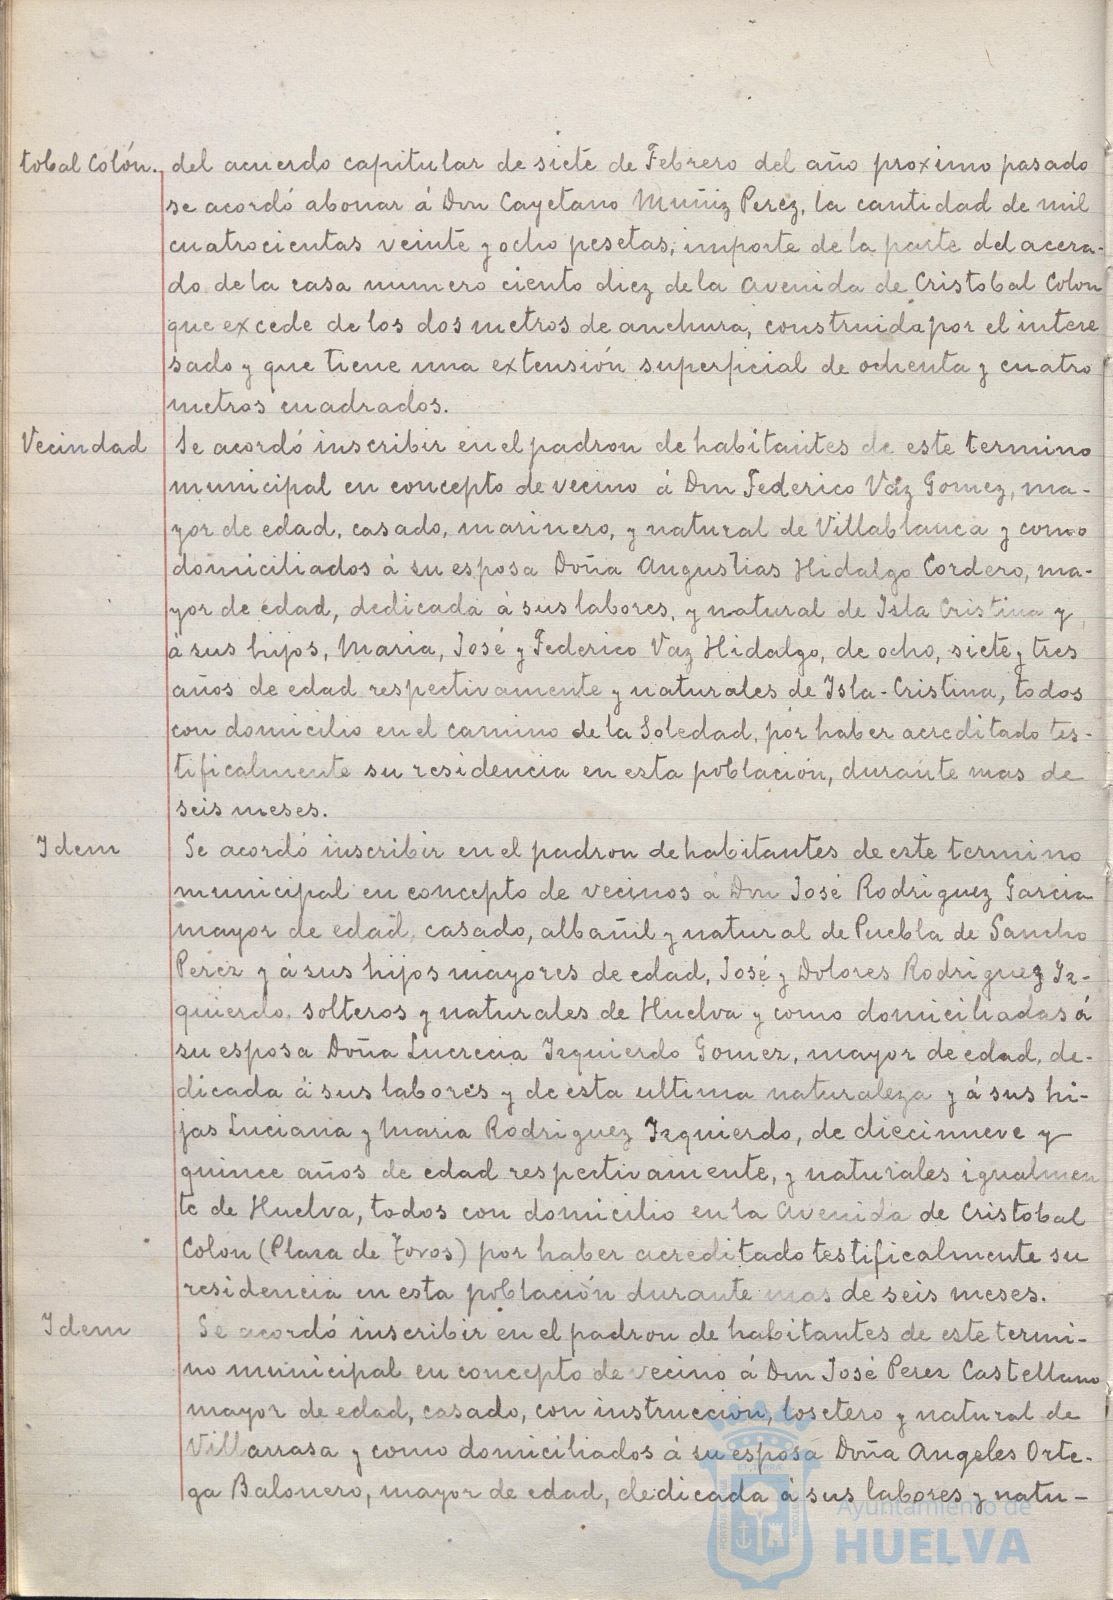 tobal Colón. del acuerdo capitular de siete de Febrero del año proximo pasado
se acordó abonar á Don Cayetano Muñiz Perez, la cantidad de mil
cuatrocientas veinte y ocho pesetas, importe de la parte del acera-
do de la casa numero ciento diez de la Avenida de Cristobal Colon
que excede de los dos metros de anchura, construida por el intere
sado y que tiene una extensión superficial de ochenta y cuatro
metros cuadrados.
Vecindad Se acordó inscribir en el padron de habitantes de este termino
municipal en concepto de vecino á Don Federico Váz Gomez, ma-
yor de edad, casado, marinero, y natural de Villablanca y como
domiciliados á su esposa Doña Angustias Hidalgo Cordero, ma-
yor de edad, dedicada á sus labores, y natural de Isla Cristina y
á sus hijos, Maria, José y Federico Vaz Hidalgo, de ocho, siete y tres
años de edad respectivamente y naturales de Isla-Cristina, todos
con domicilio en el camino de la Soledad, por haber acreditado tes-
tificalmente su residencia en esta población, durante mas de
seis meses.
Idem Se acordó inscribir en el padron de habitantes de este termino
municipal en concepto de vecinos á Don José Rodriguez Garcia
mayor de edad, casado, albañil y natural de Puebla de Sancho
Perez y á sus hijos mayores de edad, José y Dolores Rodriguez Iz-
quierdo, solteros y naturales de Huelva y como domiciliadas á
su esposa Doña Lucrecia Izquierdo Gomez, mayor de edad, de-
dicada á sus labores y de esta ultima naturaleza y á sus hi-
jas Luciana y Maria Rodriguez Izquierdo, de diecinueve y
quince años de edad respectivamente, y naturales igualmen
te de Huelva, todos con domicilio en la Avenida de Cristobal
Colon (Plaza de Toros) por haber acreditado testificalmente su
residencia en esta población durante mas de seis meses.
Idem Se acordó inscribir en el padron de habitantes de este termi-
no municipal en concepto de vecino á Don José Perez Castellano
mayor de edad, casado, con instruccion, losetero y natural de
Villarrasa y como domiciliados á su esposa Doña Angeles Orte-
ga Balonero, mayor de edad, dedicada á sus labores y natu-
Ayuntamiento de
HUELVA